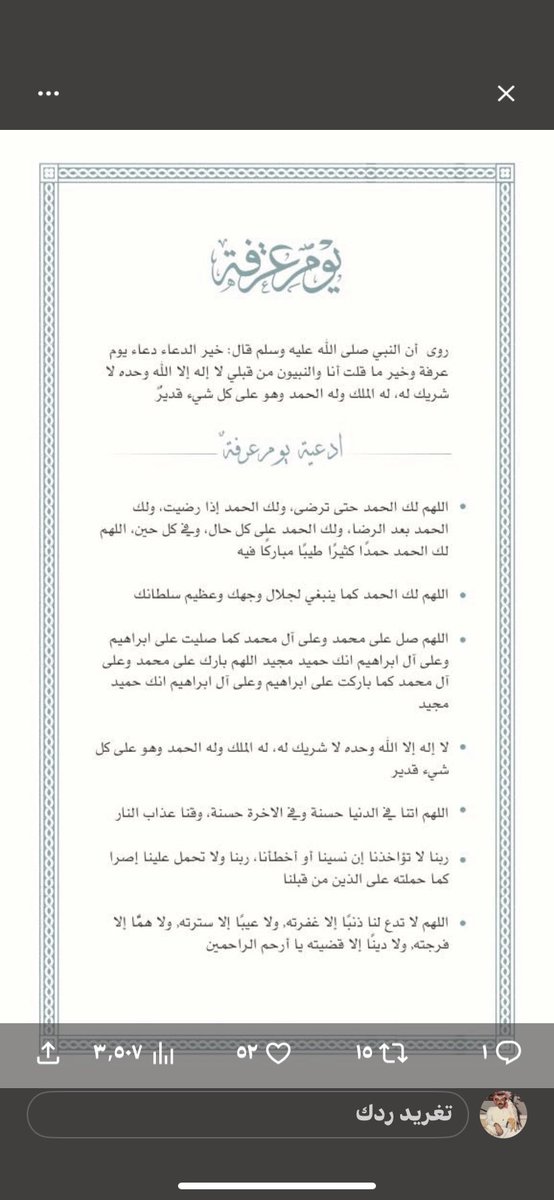 يوم عرفة
روى أن النبي صلى الله عليه وسلم قال: خير الدعاء دعاء يوم
عرفة وخير ما قلت أنا والنبيون من قبلي لا إله إلا الله وحده لا
شريك له، له الملك وله الحمد وهو على كل شيء قديرٌ
ادعية يوم عرفة
اللهم لك الحمد حتى ترضى، ولك الحمد إذا رضيت، ولك
الحمد بعد الرضا، ولك الحمد على كل حال، وفي كل حين، اللهم
لك الحمد حمدًا كثيرًا طيبًا مباركًا فيه
اللهم لك الحمد كما ينبغي لجلال وجهك وعظيم سلطانك
اللهم صل على محمد وعلى آل محمد كما صليت على ابراهيم
وعلى آل ابراهيم انك حميد مجيد اللهم بارك على محمد وعلى
آل محمد كما باركت على ابراهيم وعلى آل ابراهيم انك حميد
مجيد
لا إله إلا الله وحده لا شريك له، له الملك وله الحمد وهو على كل
شيء قدير
اللهم اتنا في الدنيا حسنة وفي الاخرة حسنة، وقنا عذاب النار
ربنا لا تؤاخذنا إن نسينا أو أخطأنا، ربنا ولا تحمل علينا إصرا
كما حملته على الذين من قبلنا
اللهم لا تدع لنا ذنبًا إلا غفرته, ولا عيبًا إلا سترته, ولا همًّا إلا
فرجته, ولا دينًا إلا قضيته يا أرحم الراحمين
١ ١٥ ٥٢ ٣,٥٠٧
تغريد ردك